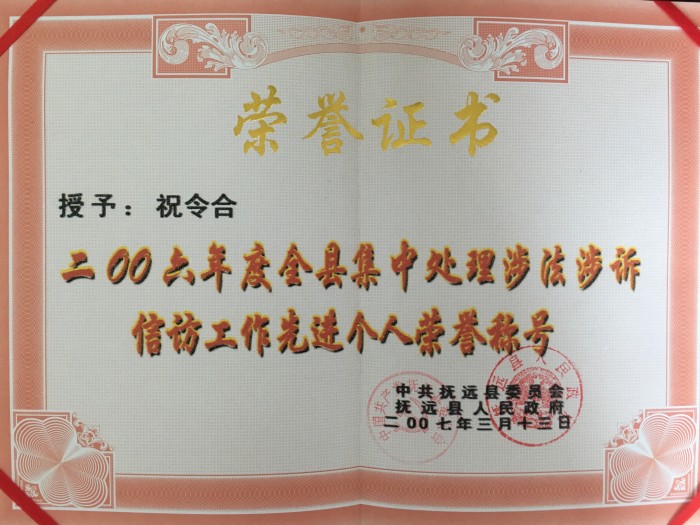 荣誉证书
授予：祝令合
二00六年度全县集中处理涉法涉诉
信访工作先进个人荣誉称号
中共抚远县委员会
抚远县人民政府
二00七年三月十三日